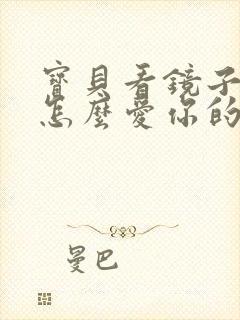 寶貝看鏡子
怎麼愛你的
曼巴